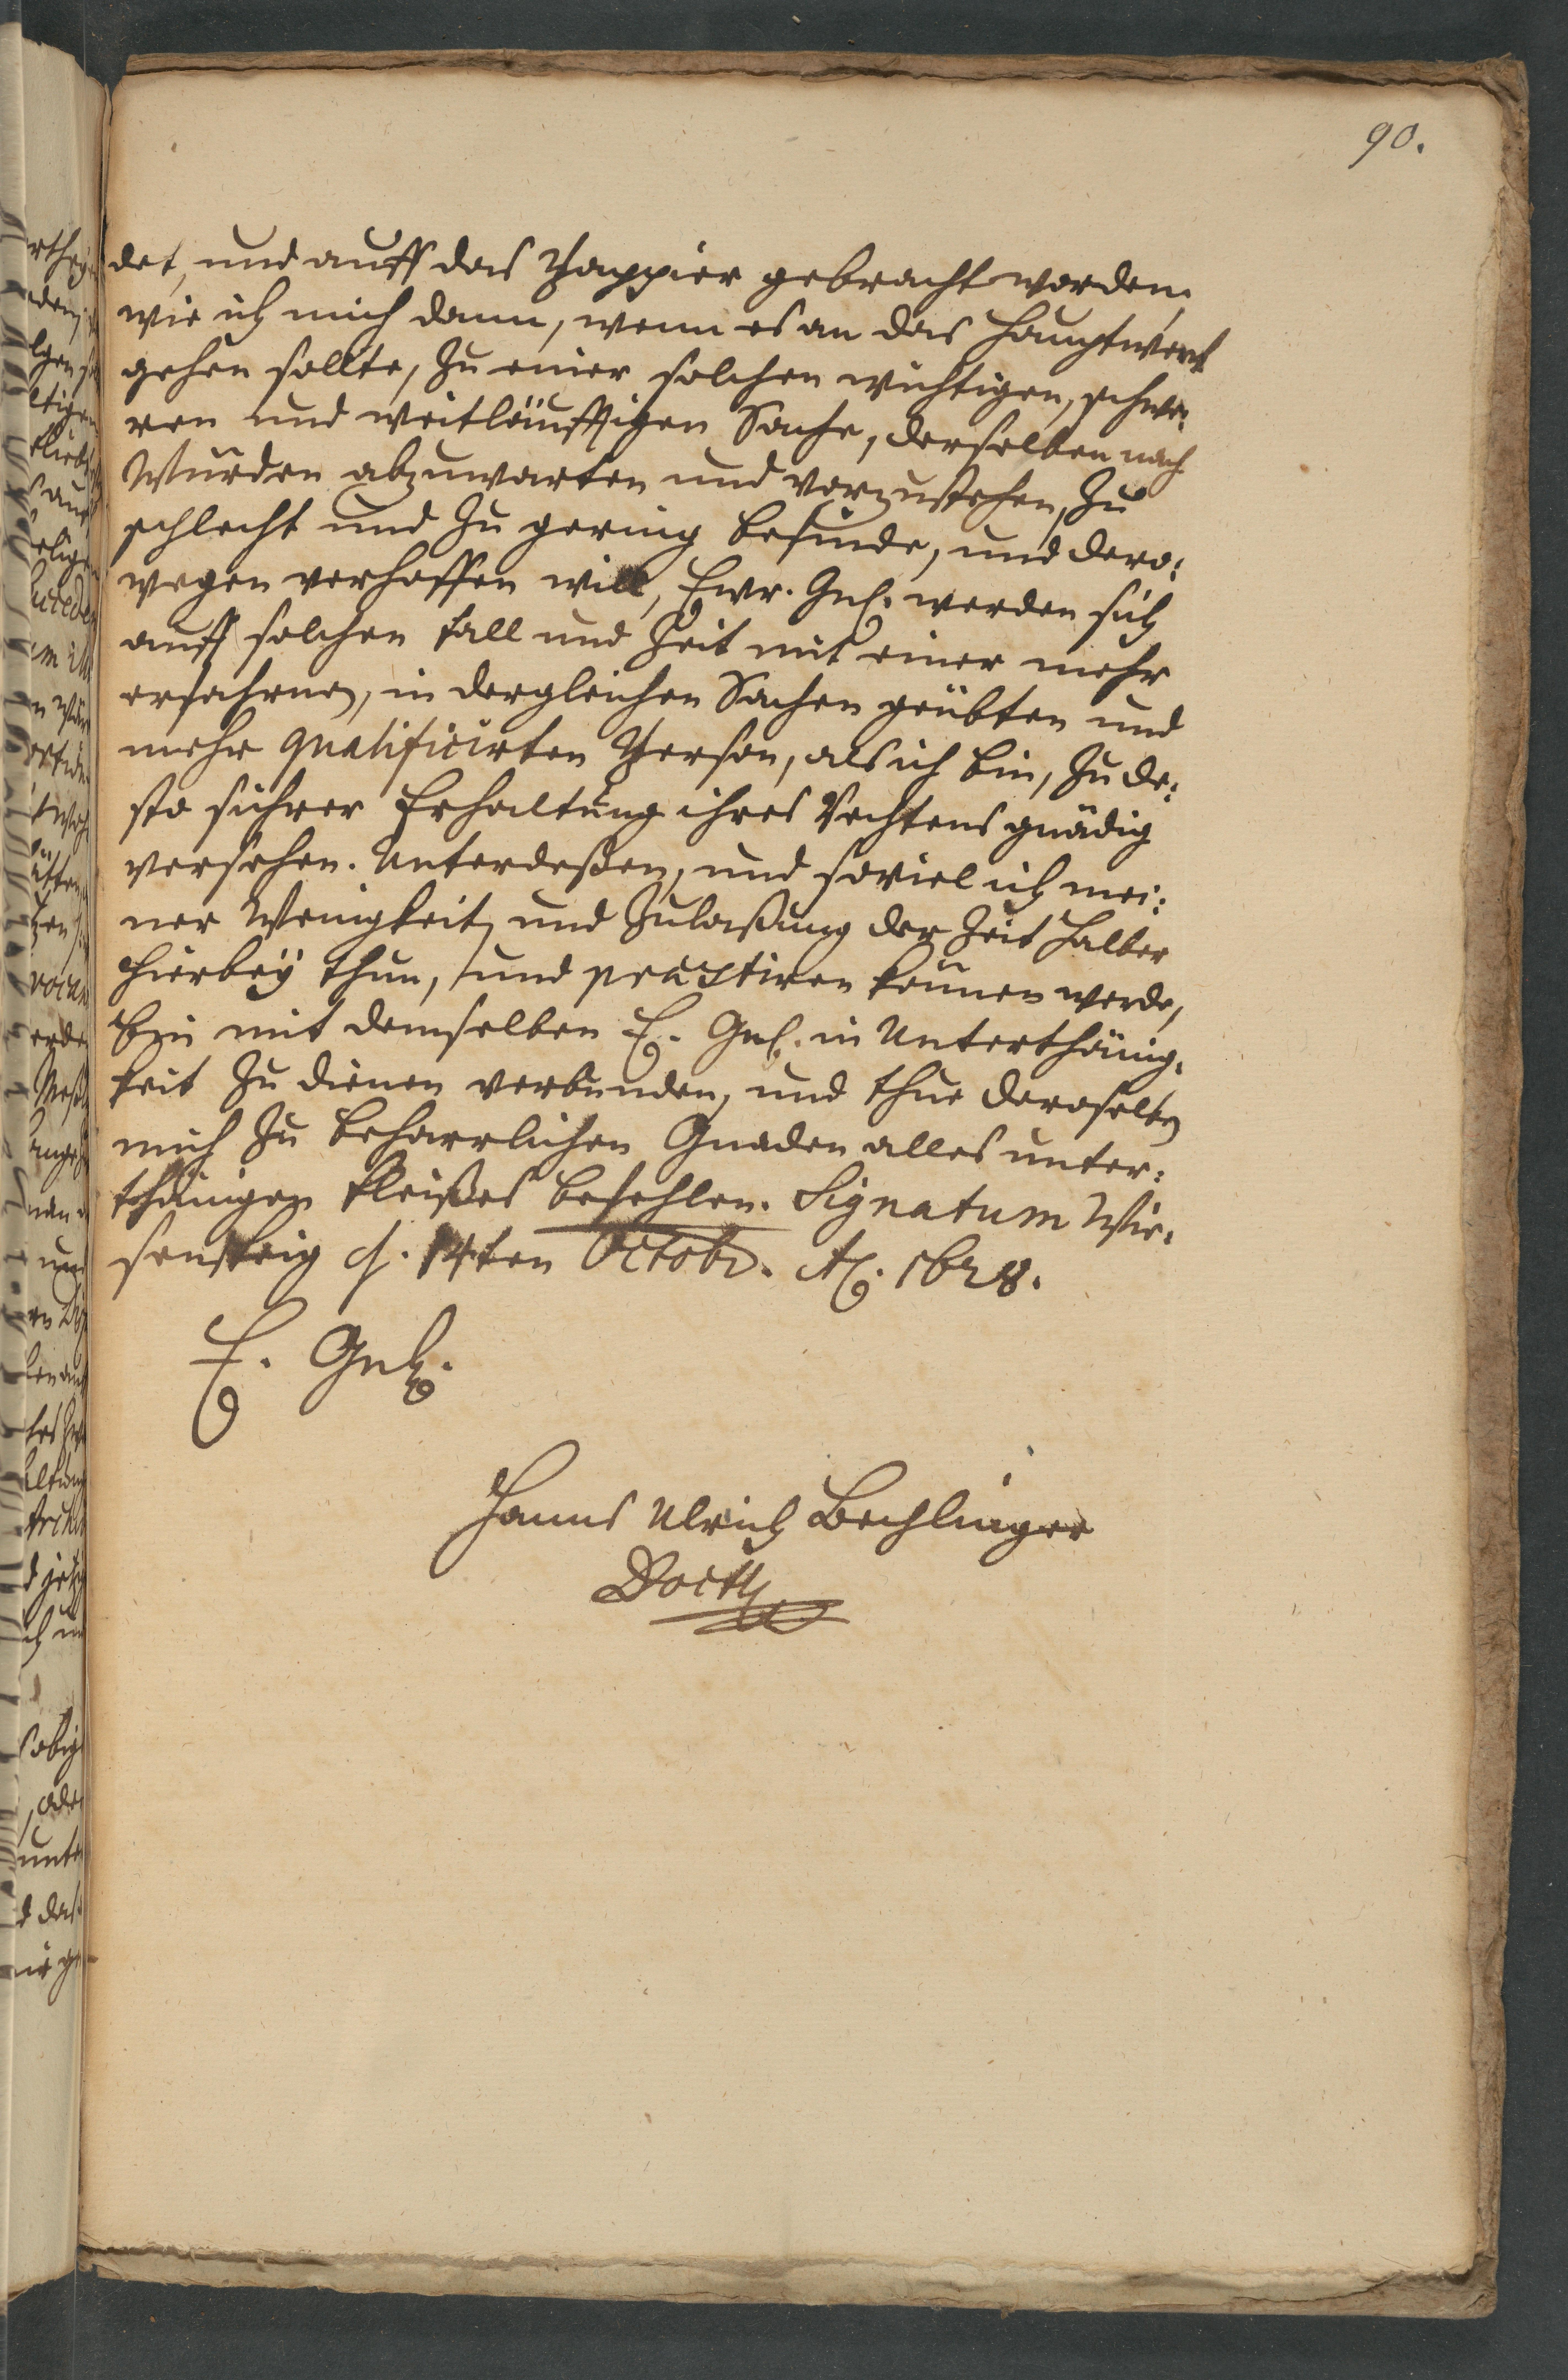 90.
det, und auff das Pappier gebracht worden,
wie ich mich dann, wenn es an das Hauptwerk
gehen sollte, zu einer solchen wichtigen, schwe:
ren und weitläuffigen Sache, derselben nach
Würden abzuwarten und vorzustehen, zu
schlecht und zu gering befinde, und dero:
wegen verhoffen will, Ewr. Gnd. werden sich
auff solchen Fall und Zeit mit einer mehr
erfahrnen, in dergleichen Sachen geübten und
mehr qualificirten Person, als ich bin, zu de:
sto sichrer Erhaltung ihres Rechtens gnädig
versehen. Unterdeßen, und soviel ich mei:
ner Wenigkeit, und Zulaßung der Zeit halber
hierbeÿ thun, und præstiren können werde,
bin mit demselben E. Gnd. in Unterthänig:
keit zu dienen verbunden, und thue deroselben
mich zu beharrlichen Gnaden alles unter:
thänigen Fleißes befehlen. Signatum Wie:
sensteig d. 14ten Octobr. Aõ. 1628.
E. Gnd.
Hanns Ulrich Bechlinger
Doctor